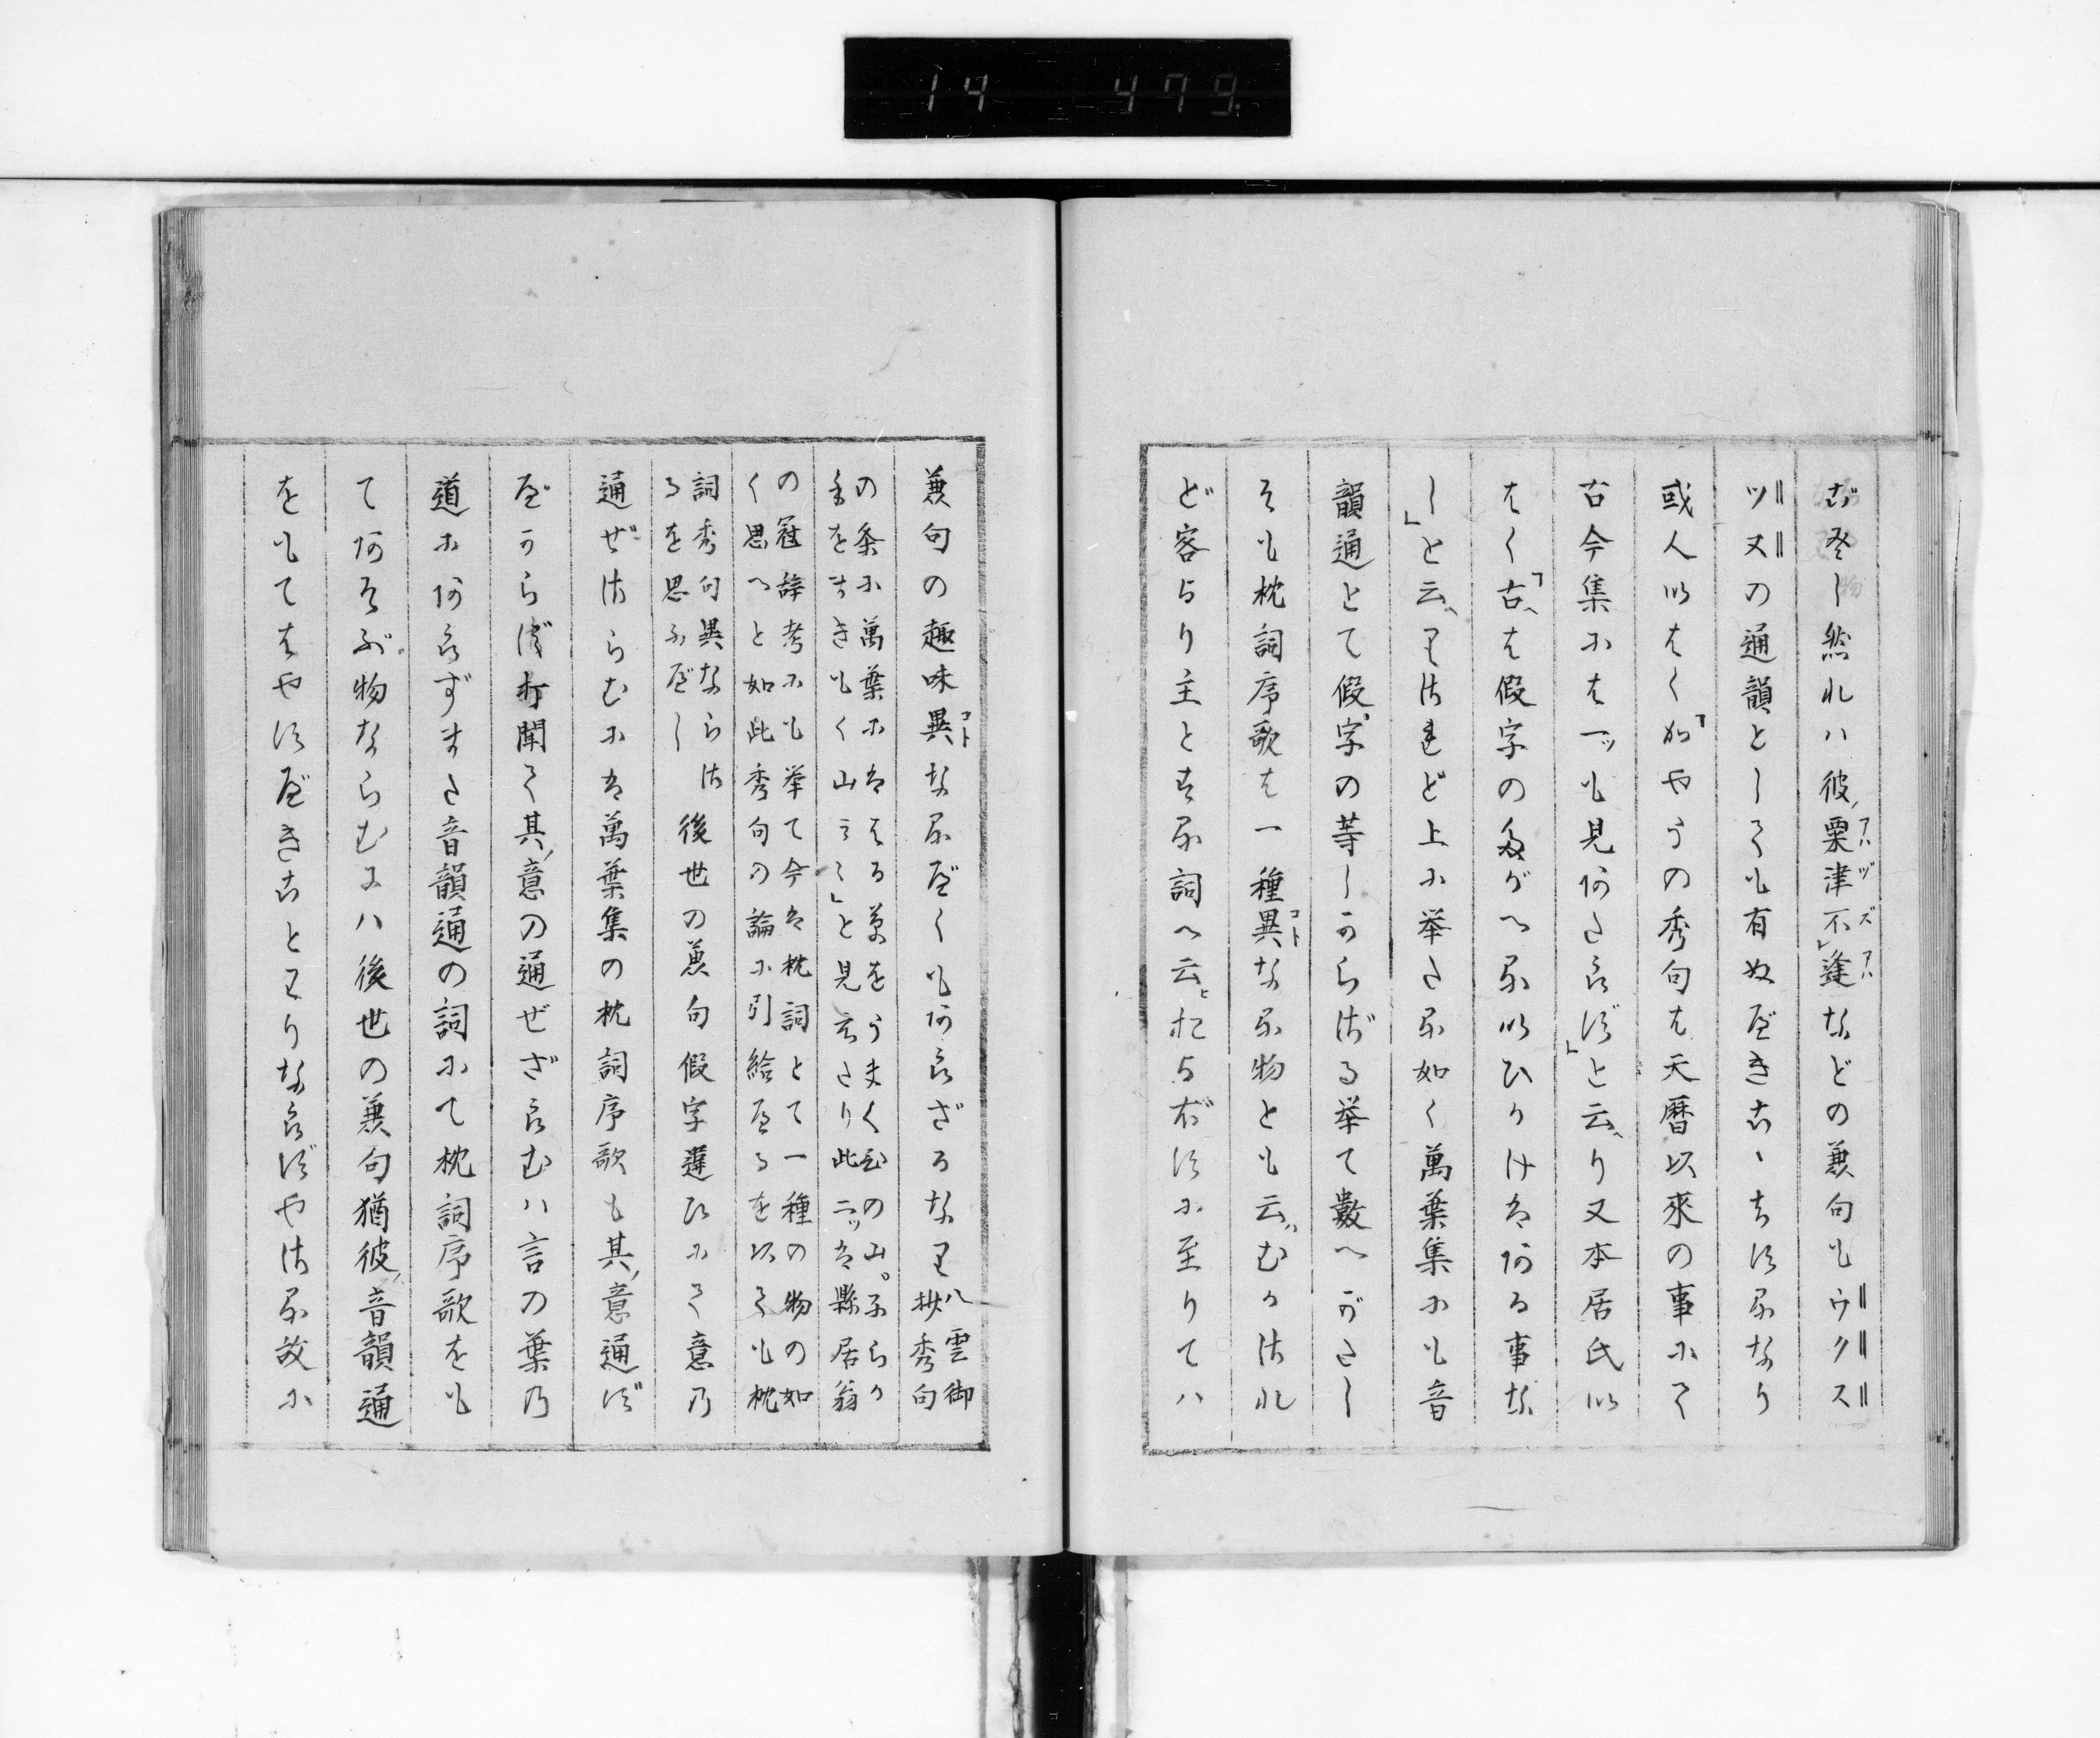 14 479.
ぶるし然れハ彼ノ粟津不逢などの兼句もウクス
ツヌの通韻としても有ぬべきこゝちするなり
或人いはく「かやうの秀句は天暦以來の事にて
古今集には一ッも見あたらず」と云へり又本居氏い
はく「古へは假字のたがへるいひかけはある事な
し」と云へりされど上に挙たる如く萬葉集にも音
韻通とて假字の等しからざる挙て數へがたし
そも枕詞序歌は一種異なる物とも云ハむかされ
ど客より主とする詞へ云とおよぼすに至りてハ
兼句の趣味異なるべくもあらざるなり八雲御抄秀句
の条に萬葉には
の冠辞考にも挙て今は枕詞として一種の物の如
く思へと如此秀句の論に引給へるを以ても枕
詞秀句異ならさ
るを思ふべし
後世の兼句假字違ひにて意の
通ぜさらむには萬葉集の枕詞序歌も其ノ意通ず
べからず打聞て其ノ意の通ぜざらむハ言の葉乃
道にあらずまた音韻通の詞にて枕詞序歌をも
てあそぶ物ならむにハ後世の兼句猶彼ノ音韻通
をもてはやすべきことわりならずやさる故に